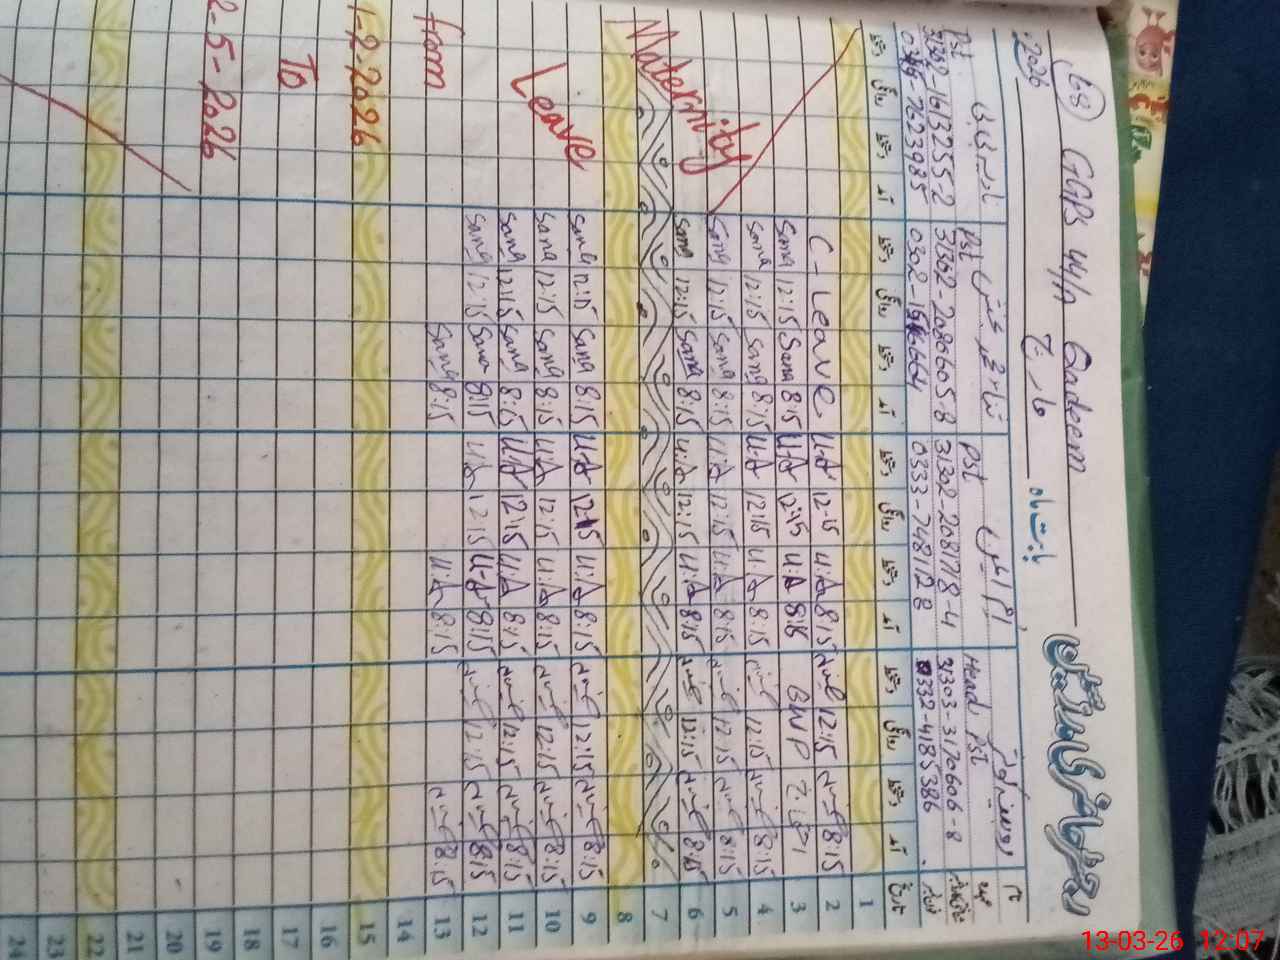 68 GGPS 44/A Qadeem
2026 مارچ بابت ماہ
نام
عہدہ Head PST PST PST PST
31303-3170606-8 31302-2081718-4 31302-2080605-8 31302-1613255-2
0332-4185386 0333-7481128 0346-7623985
تاریخ آمد دستخط روانگی دستخط آمد دستخط روانگی دستخط آمد دستخط روانگی دستخط آمد دستخط روانگی دستخط
1
2 8:15 12:15 8:15 U.A 12-15 U.A C-Leave
3 BNP 8:15 U.A 12:15 U.A 8:15 Sana 12:15 Sana
4 8:15 12:15 8:15 U.A 12:15 U.A 8:15 Sana 12:15 Sana
5 8:15 12:15 8:15 U.A 12:15 U.A 8:15 Sana 12:15 Sana
6 8:15 12:15 8:15 U.A 12:15 U.A 8:15 Sana 12:15 Sana
7
8
9 8:15 12:15 8:15 U.A 12:15 U.A 8:15 Sana 12:15 Sana
10 8:15 12:15 8:15 U.A 12:15 U.A 8:15 Sana 12:15 Sana
11 8:15 12:15 8:15 U.A 12:15 U.A 8:15 Sana 12:15 Sana
12 8:15 12:15 8:15 U.A 12:15 U.A 8:15 Sana 12:15 Sana
13 8:15 8:15 U.A 8:15 Sana
14
15
16
17
18
19
20
21
22
23
24
Maternity
Leave
from
1-2-2026
To
2-5-2026
13-03-26 12:07